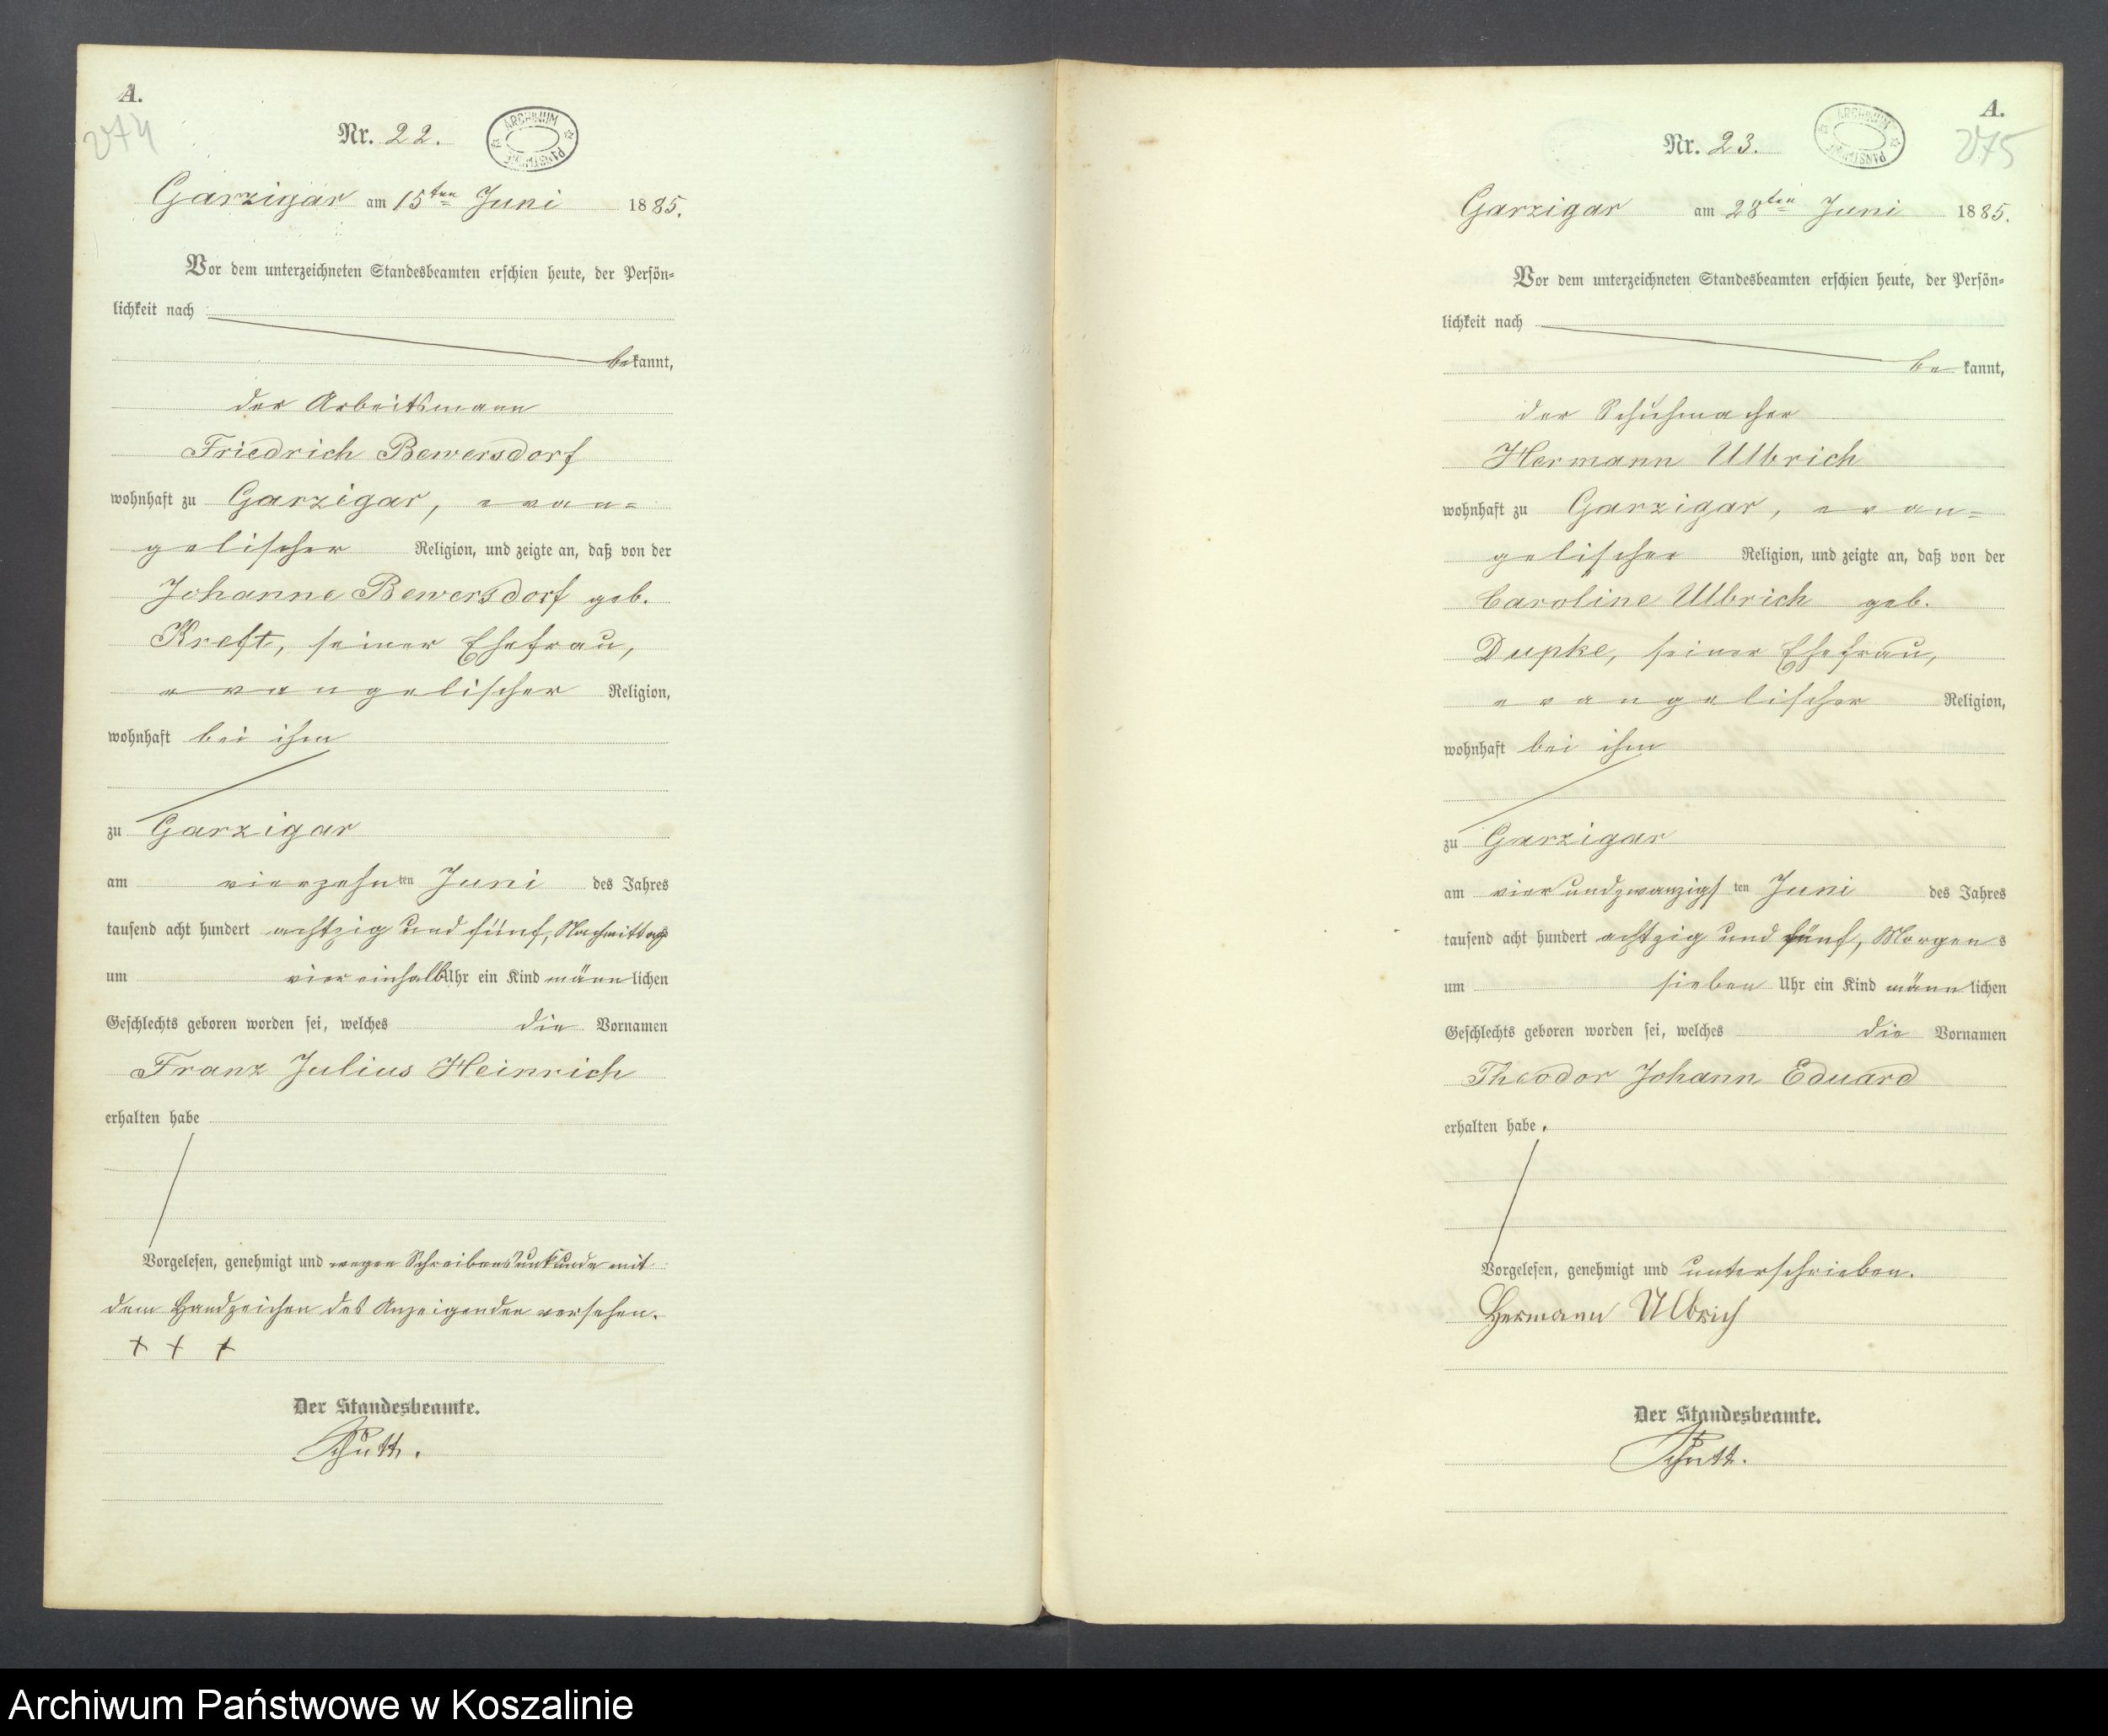 A.
274
Nr. 22.
ARCHIWUM PAŃSTWOWE
Garzigar am 15ten Juni 1885.
Vor dem unterzeichneten Standesbeamten erschien heute, der Persön=
lichkeit nach
bekannt,
der Arbeitsmann
Friedrich Bewersdorf
wohnhaft zu Garzigar, evan=
gelischer Religion, und zeigte an, daß von der
Johanne Bewersdorf geb.
Kreft, seiner Ehefrau,
evangelischer Religion,
wohnhaft bei ihm
zu Garzigar
am vierzehnten Juni des Jahres
tausend acht hundert achtzig und fünf, Nachmittags
um vier einhalb Uhr ein Kind männlichen
Geschlechts geboren worden sei, welches die Vornamen
Franz Julius Heinrich
erhalten habe
Vorgelesen, genehmigt und wegen Schreibensunkunde mit
dem Handzeichen des Anzeigenden versehen.
+ + +
Der Standesbeamte.
A.
275
Nr. 23.
ARCHIWUM PAŃSTWOWE
Garzigar am 28ten Juni 1885.
Vor dem unterzeichneten Standesbeamten erschien heute, der Persön=
lichkeit nach
bekannt,
der Schuhmacher
Hermann Ulbrich
wohnhaft zu Garzigar, evan=
gelischer Religion, und zeigte an, daß von der
Caroline Ulbrich geb.
Dupke, seiner Ehefrau,
evangelischer Religion,
wohnhaft bei ihm
zu Garzigar
am vierundzwanzigsten Juni des Jahres
tausend acht hundert achtzig und fünf, Morgens
um sieben Uhr ein Kind männlichen
Geschlechts geboren worden sei, welches die Vornamen
Theodor Johann Eduard
erhalten habe.
Vorgelesen, genehmigt und unterschrieben.
Hermann Ulbrich
Der Standesbeamte.
Archiwum Państwowe w Koszalinie